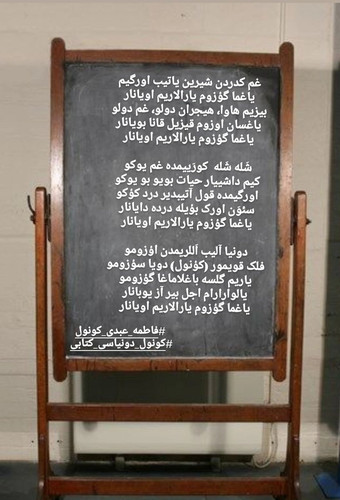 غم کدردن شیرین یاتیب اورگیم
یاغما گؤزوم یارالاریم اویانار
بیزیم هاوا، هیجران دولو، غم دولو
یاغسان اوزوم قیزیل قانا بویانار
یاغما گؤزوم یارالاریم اویانار
شَله شَله کورَییمده غم یوکو
کیم داشییار حیات بویو بو یوکو
اورگیمده قول آتیبدیر درد کؤکو
سئوَن اورک بؤیله درده دایانار
یاغما گؤزوم یارالاریم اویانار
دونیا آلیب اَللریمدن اؤزومو
فلک قویمور (کؤنول) دویا سؤزومو
یاریم گلسه باغلاماغا گؤزومو
یالوارارام اجل بیر آز یوبانار
یاغما گؤزوم یارالاریم اویانار
#فاطمه_عبدی_کونول
#کونول_دونیاسی_کتابی